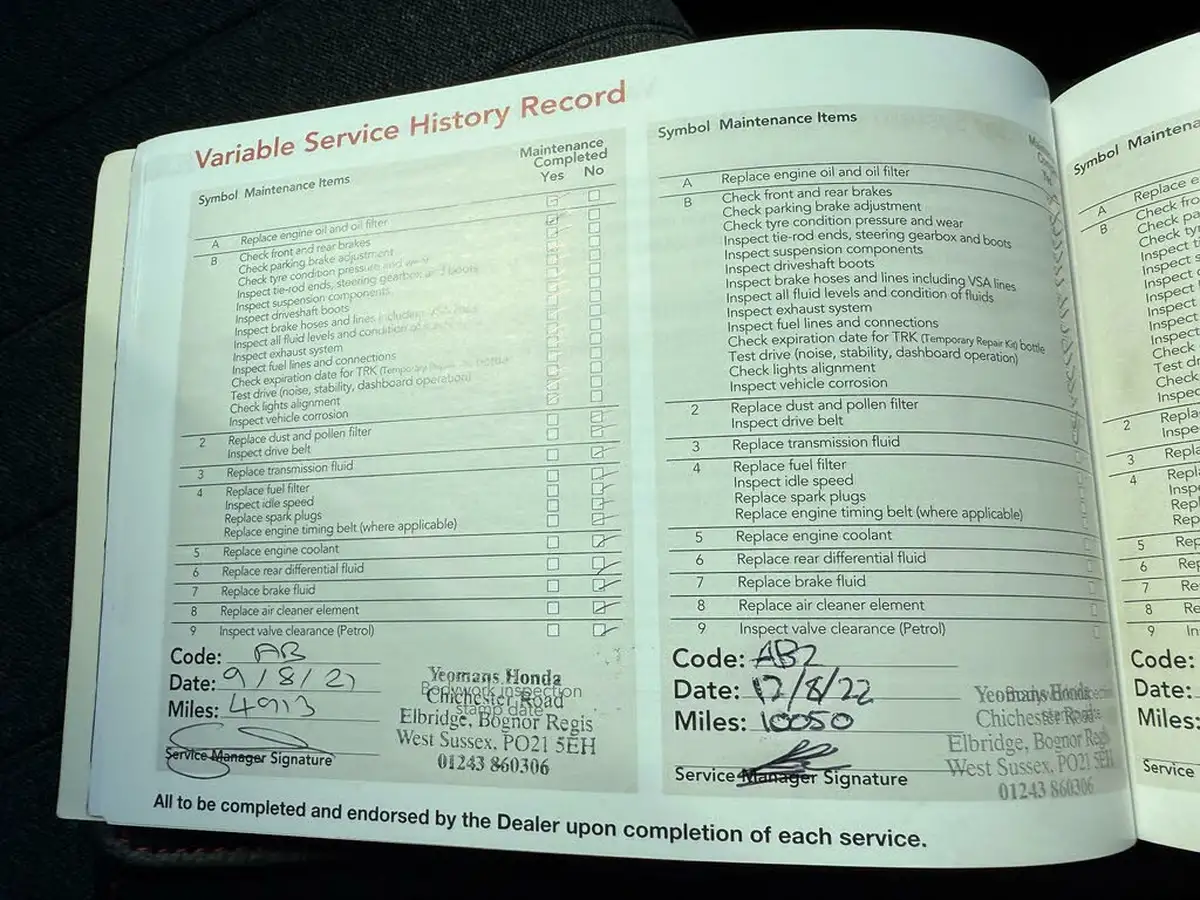 Variable Service History Record
Symbol Maintenance Items
Maintenance
Completed
Yes No
A Replace engine oil and oil filter
B Check front and rear brakes
Check parking brake adjustment
Check tyre condition pressure and wear
Inspect tie-rod ends, steering gearbox and boots
Inspect suspension components
Inspect driveshaft boots
Inspect brake hoses and lines including VSA lines
Inspect all fluid levels and condition of fluids
Inspect exhaust system
Inspect fuel lines and connections
Check expiration date for TRK (Temporary Repair Kit) bottle
Test drive (noise, stability, dashboard operation)
Check lights alignment
Inspect vehicle corrosion
2 Replace dust and pollen filter
Inspect drive belt
3 Replace transmission fluid
4 Replace fuel filter
Inspect idle speed
Replace spark plugs
Replace engine timing belt (where applicable)
5 Replace engine coolant
6 Replace rear differential fluid
7 Replace brake fluid
8 Replace air cleaner element
9 Inspect valve clearance (Petrol)
Code: AB
Date: 9/8/21
Miles: 4913
Service Manager Signature
Yeomans Honda
Bodywork inspection
Chichester Road
stamp date
Elbridge, Bognor Regis
West Sussex, PO21 5EH
01243 860306
Symbol Maintenance Items
A Replace engine oil and oil filter
B Check front and rear brakes
Check parking brake adjustment
Check tyre condition pressure and wear
Inspect tie-rod ends, steering gearbox and boots
Inspect suspension components
Inspect driveshaft boots
Inspect brake hoses and lines including VSA lines
Inspect all fluid levels and condition of fluids
Inspect exhaust system
Inspect fuel lines and connections
Check expiration date for TRK (Temporary Repair Kit) bottle
Test drive (noise, stability, dashboard operation)
Check lights alignment
Inspect vehicle corrosion
2 Replace dust and pollen filter
Inspect drive belt
3 Replace transmission fluid
4 Replace fuel filter
Inspect idle speed
Replace spark plugs
Replace engine timing belt (where applicable)
5 Replace engine coolant
6 Replace rear differential fluid
7 Replace brake fluid
8 Replace air cleaner element
9 Inspect valve clearance (Petrol)
Code: AB2
Date: 12/8/22
Miles: 10050
Service Manager Signature
Yeomans Honda
Chichester Road
Elbridge, Bognor Regis
West Sussex, PO21 5EH
01243 860306
All to be completed and endorsed by the Dealer upon completion of each service.
Symbol
A Replace
B Check
Check
Check
Inspect
Inspect
Inspect
Inspect
Inspect
Inspect
Inspect
Check
Test
Check
Inspect
2
3
4
5
6
7
8
9
Code:
Date:
Miles:
Service